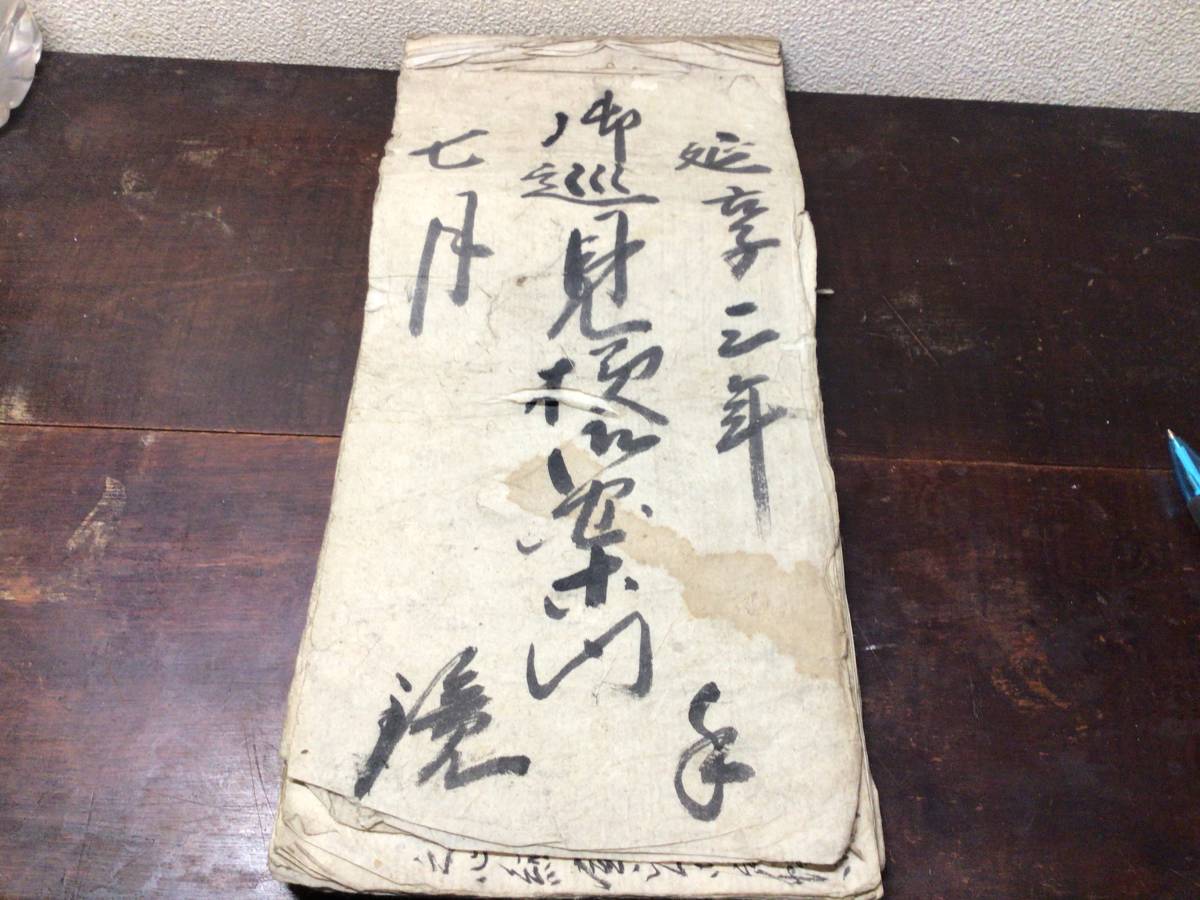 延享三年
手
御巡見様御案内
七月
鏡